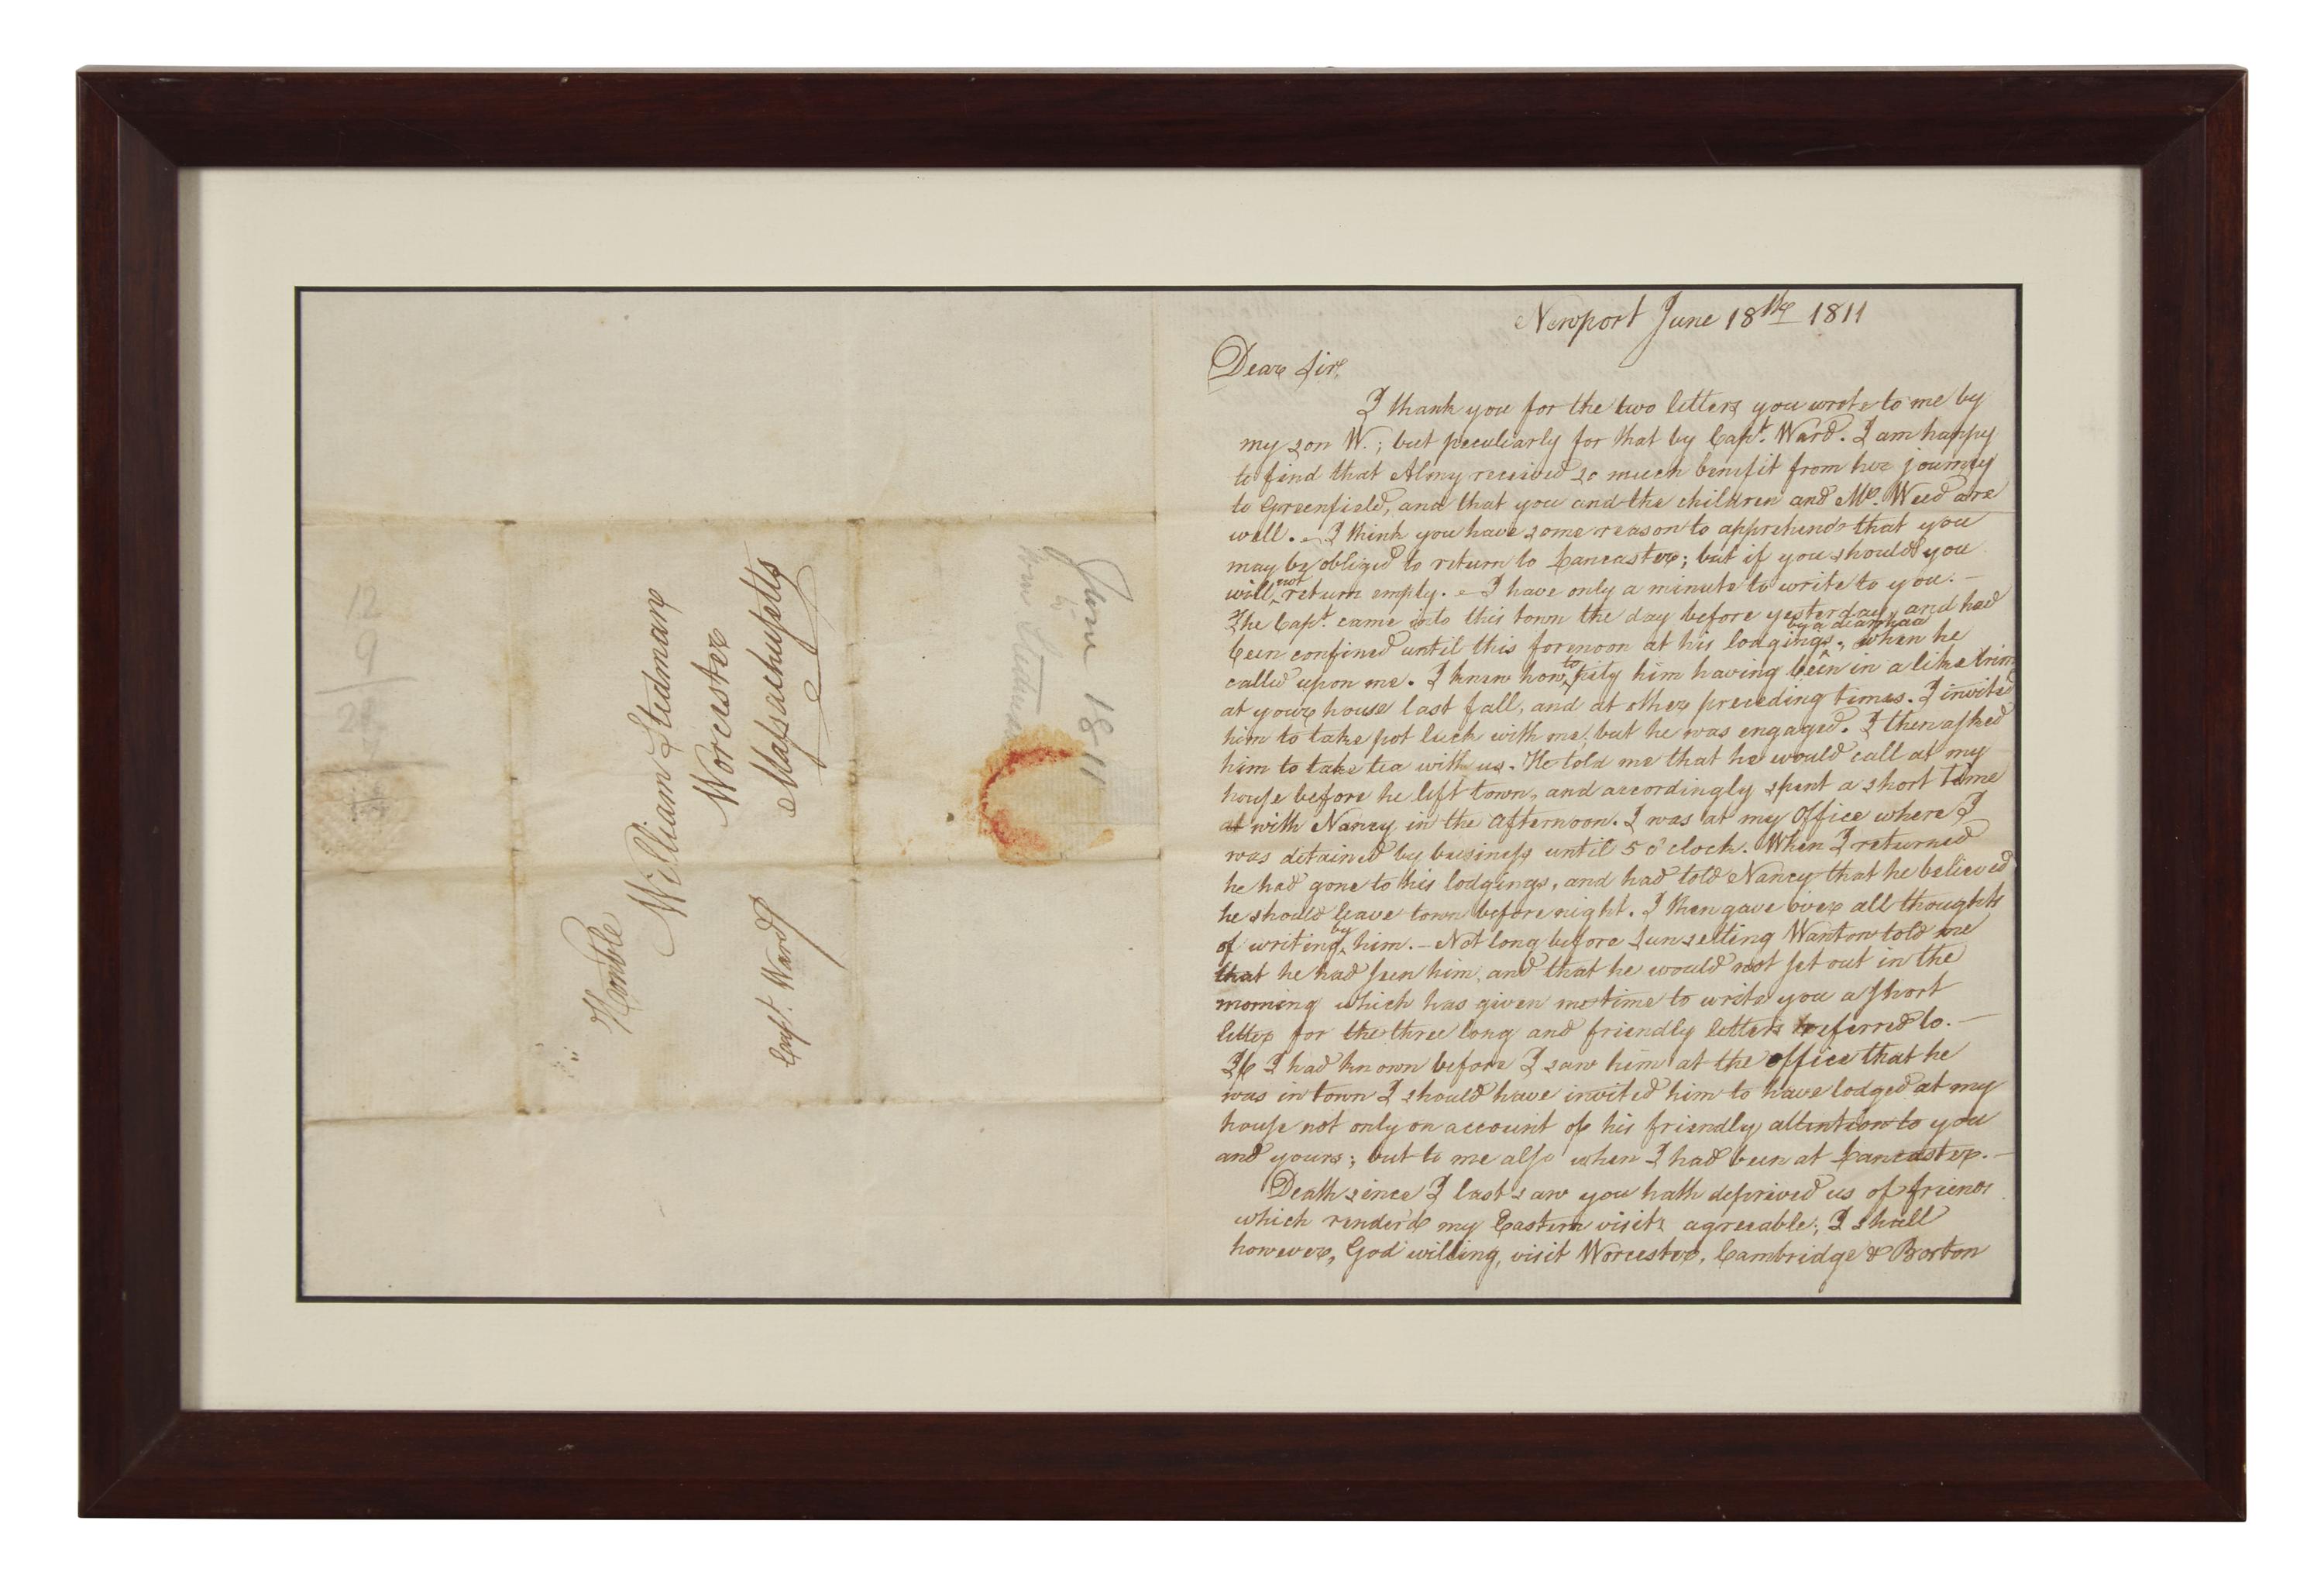 Newport June 18th 1811
Dear Sir,
I thank you for the two letters you wrote to me by
my son W.; but peculiarly for that by Capt. Ward. I am happy
to find that Almy received so much benefit from her journey
to Greenfield, and that you and the children and Mr. Weed are
well. I think you have some reason to apprehend that you
may be obliged to return to Lancaster; but if you should you
will not return empty. I have only a minute to write to you. —
The Capt. came into this town the day before yesterday, and had
been confined until this forenoon at his lodgings, by a diarrhaa when he
called upon me. I knew how to pity him having been in a like trim
at your house last fall, and at other preceding times. I invited
him to take pot luck with me, but he was engaged. I then asked
him to take tea with us. He told me that he would call at my
house before he left town, and accordingly spent a short time
at with Nancy in the afternoon. I was at my Office where I
was detained by business until 5 o'clock. When I returned
he had gone to his lodgings, and had told Nancy that he believed
he should leave town before night. I then gave over all thoughts
of writing by him. — Not long before sun setting Wanton told me
that he had seen him, and that he would not set out in the
morning which has given me time to write you a short
letter for the three long and friendly letters referred to. —
If I had known before I saw him at the office that he
was in town I should have invited him to have lodged at my
house not only on account of his friendly attention to you
and yours; but to me also when I had been at Lancaster. —
Death since I last saw you hath deprived us of friends
which render'd my Eastern visits agreeable; I shall
however, God willing, visit Worcester, Cambridge & Boston
Honble
William Stedman
Worcester
Massachusetts
Capt. Ward
June 1811
12
9